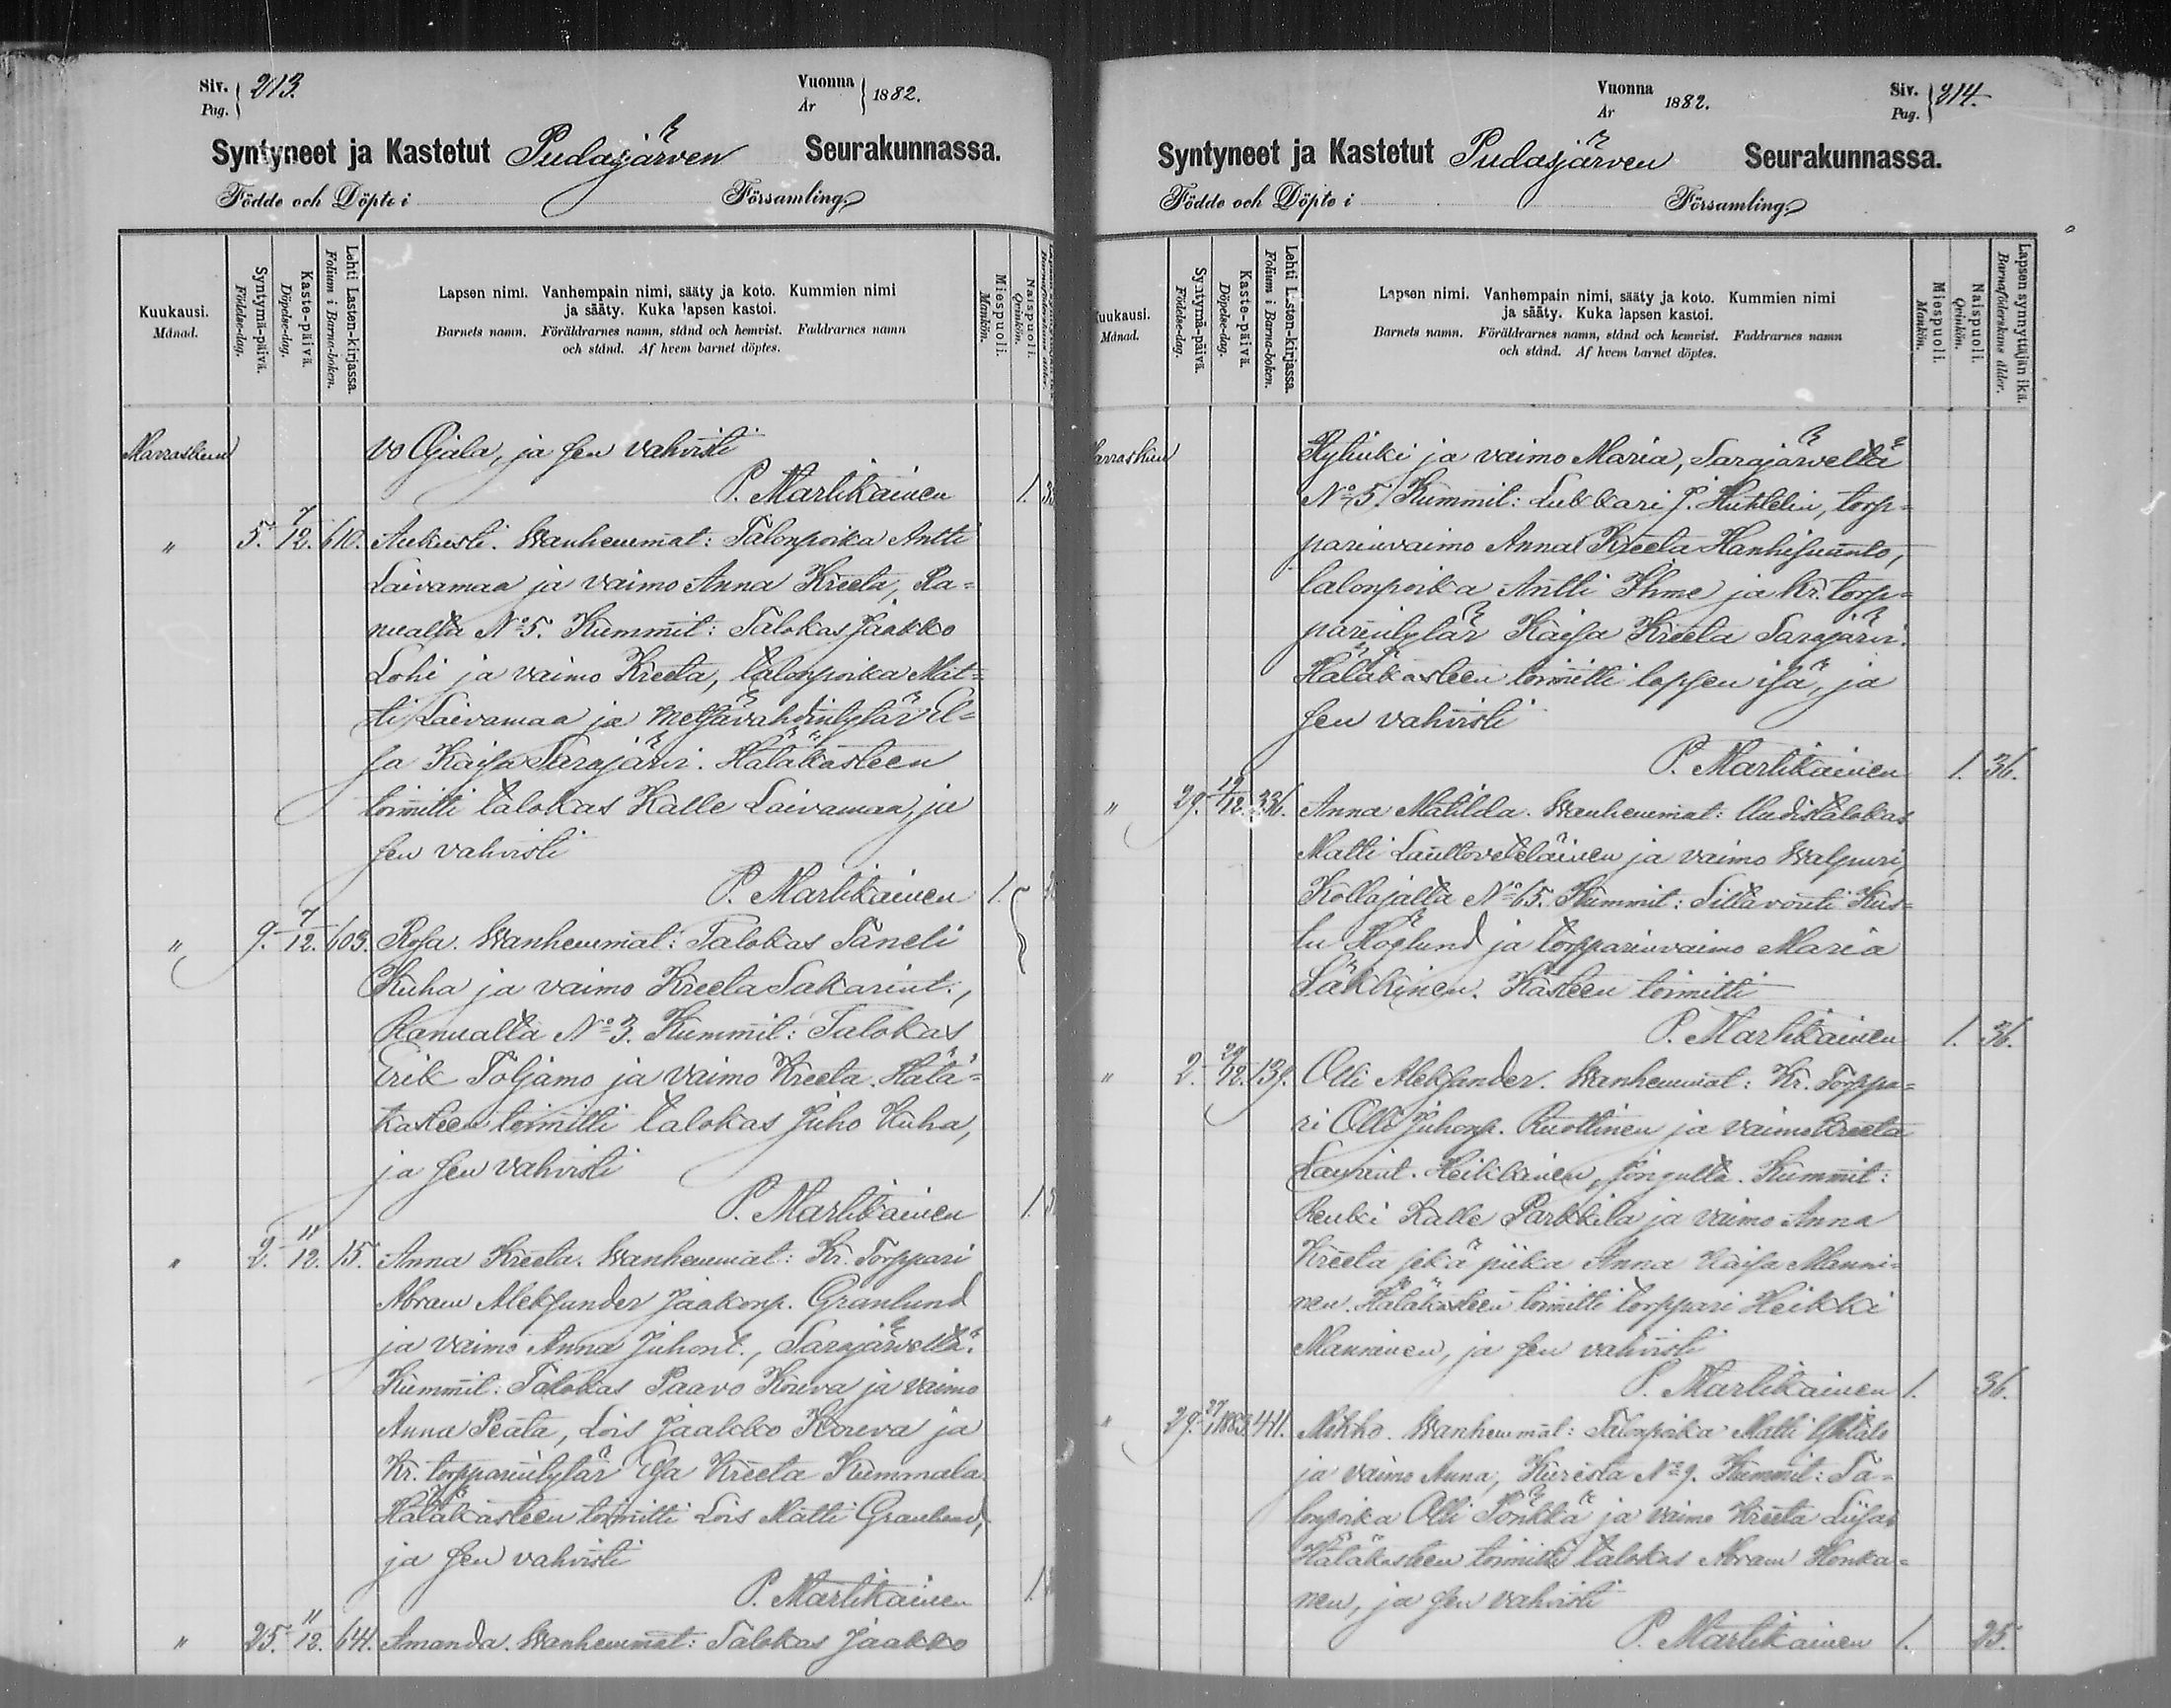 Siv. 213.
Pag.
Vuonna 1882.
År
Syntyneet ja Kastetut Pudasjärven Seurakunnassa.
Födde och Döpte i Församling.
Kuukausi.
Månad.
Syntymä-päivä.
Födelse-dag.
Kaste-päivä.
Döpelse-dag.
Lehti Lasten-kirjassa.
Folium i Barna-boken.
Lapsen nimi. Vanhempain nimi, sääty ja koto. Kummien nimi
ja sääty. Kuka lapsen kastoi.
Barnets namn. Föräldrarnes namn, stånd och hemvist. Faddrarnes namn
och stånd. Af hvem barnet döptes.
Miespuoli.
Mankön.
Naispuoli.
Qvinkön.
Marraskuu vo Ojala, ja sen vahvisti
P. Martikainen 1.
" 5. 7/12. 610. Aukusti. Wanhemmat: Talonpoika Antti
Laivamaa ja vaimo Anna Kreeta, Ra=
nualta No 5. Kummit: Talokas Jaakko
Lohi ja vaimo Kreeta, talonpoika Mat=
ti Laivamaa ja metsävahdintytär El=
sa Kaisa Sarajärvi. Hätäkasteen
toimitti talokas Kalle Laivamaa, ja
sen vahvisti
P. Martikainen 1.
" 9. 7/12. 603. Rosa. Wanhemmat: Talokas Taneli
Kuha ja vaimo Kreeta Sakarint.,
Ranualta No 3. Kummit: Talokas
Erik Toljamo ja vaimo Kreeta. Hätä=
kasteen toimitti talokas Juho Kuha,
ja sen vahvisti
P. Martikainen 1.
" 2. 11/12. 15. Anna Kreeta. Wanhemmat: Kr. Torppari
Abram Aleksander Jaakonp. Granlund
ja vaimo Anna Juhont., Sarajärveltä.
Kummit: Talokas Paavo Kouva ja vaimo
Anna Peata, Lois Jaakko Kouva ja
Kr. torpparintytär Kreeta Kummala.
Hätäkasteen toimitti Lois Matti Granlund,
ja sen vahvisti
P. Martikainen 1.
" 25. 11/12. 641. Amanda. Wanhemmat: Talokas Jaakko
Vuonna 1882.
År
Siv. 214.
Pag.
Syntyneet ja Kastetut Pudasjärven Seurakunnassa.
Födde och Döpte i Församling.
Kuukausi.
Månad.
Syntymä-päivä.
Födelse-dag.
Kaste-päivä.
Döpelse-dag.
Lehti Lasten-kirjassa.
Folium i Barna-boken.
Lapsen nimi. Vanhempain nimi, sääty ja koto. Kummien nimi
ja sääty. Kuka lapsen kastoi.
Barnets namn. Föräldrarnes namn, stånd och hemvist. Faddrarnes namn
och stånd. Af hvem barnet döptes.
Miespuoli.
Mankön.
Naispuoli.
Qvinkön.
Lapsen synnyttäjän ikä.
Barnaföderskans ålder.
Marraskuu Ryhinki ja vaimo Maria, Sarajärveltä
No 5. Kummit: Lukkari J. Huhtelin, torp=
parinvaimo Anna Kreeta Hanhisuanto,
talonpoika Antti Ihme ja kr. torp=
parintytär Kaisa Kreeta Sarajärvi.
Hätäkasteen toimitti lapsen isä, ja
sen vahvisti
P. Martikainen 1. 36.
" 29. 12. 336. Anna Matilda. Wanhemmat: Uudistalokas
Matti Lauttoveteläinen ja vaimo Walpuri,
Kollajalta No 65. Kummit: Siltavouti Kus=
tu Höglund ja torpparinvaimo Maria
Säkkinen. Kasteen toimitti
P. Martikainen 1. 36.
" 2. 29/12. 139. Olli Aleksander. Wanhemmat: Kr. Torppa=
ri Olli Juhonp. Ruottinen ja vaimo Kreeta
Laurint. Heikkinen, Jongulta. Kummit:
Renki Kalle Parkkila ja vaimo Anna
Kreeta sekä piika Anna Kaisa Manni=
nen. Hätäkasteen toimitti torppari Heikki
Manninen, ja sen vahvisti
P. Martikainen 1. 36.
" 29. 27/1 1883. 411. Mikko. Wanhemmat: Talonpoika Matti
ja vaimo Anna, No 9. Kummit: Ta=
lonpoika Olli Tönkkä ja vaimo Kreeta Liisa.
Hätäkasteen toimitti talokas Abram Honka=
nen, ja sen vahvisti
P. Martikainen 1. 25.